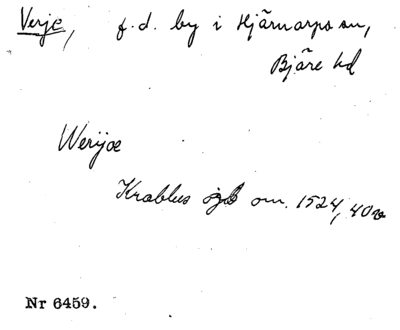 Verje, f.d. by i Hjärnarps sn,
Bjäre hd
Werijæ
Krabbes jgb om. 1524, 40v
Nr 6459.